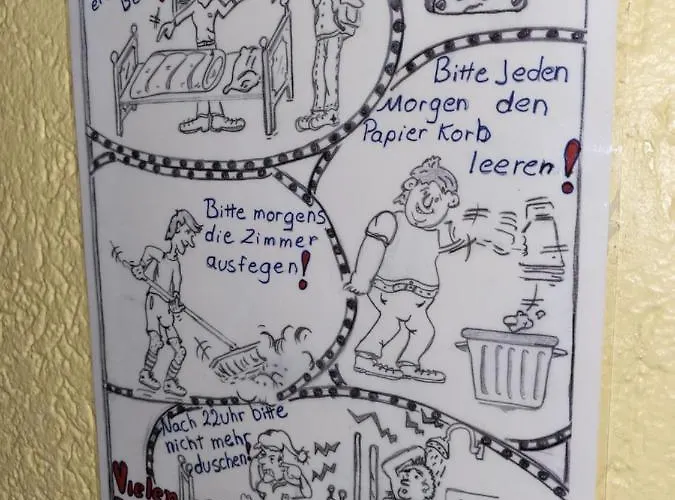 Bitte Jeden
Morgen den
Papier Korb
leeren!
Bitte morgens
die Zimmer
ausfegen!
Nach 22uhr bitte
nicht mehr
duschen!
Vielen